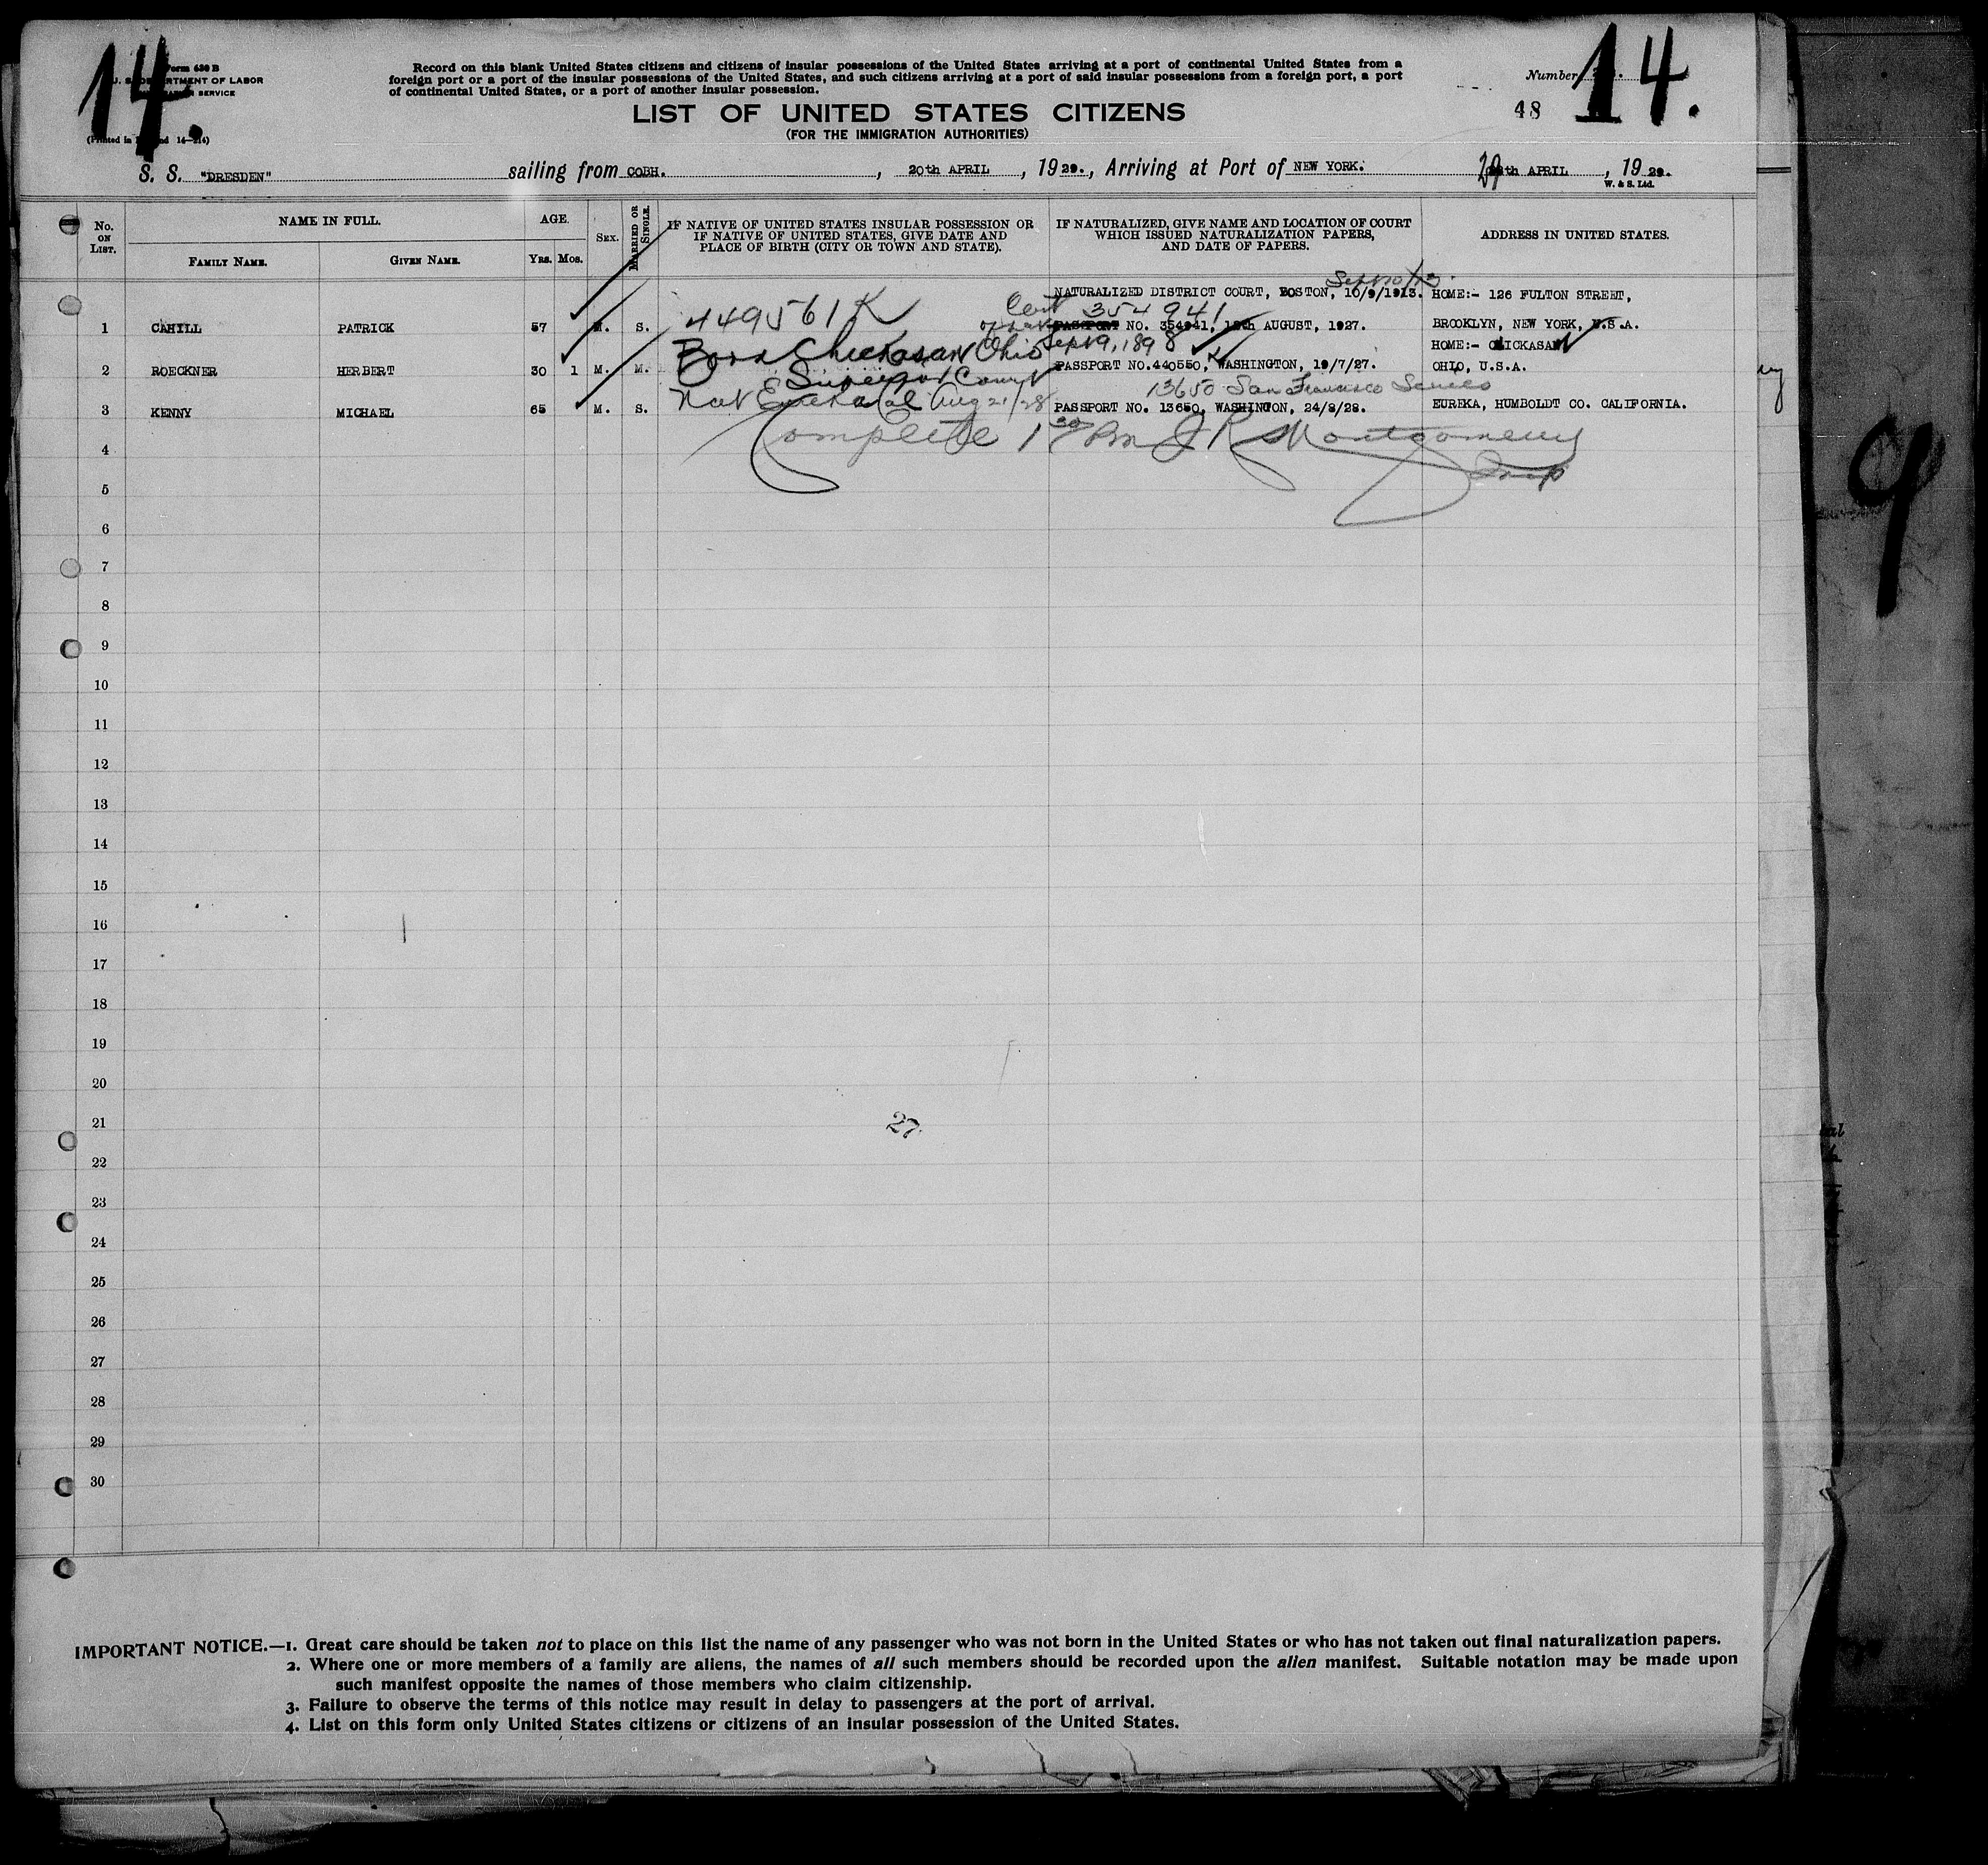 14.
Form 630 B
U. S. DEPARTMENT OF LABOR
SERVICE
(Printed in England 14—214)
Record on this blank United States citizens and citizens of insular possessions of the United States arriving at a port of continental United States from a
foreign port or a port of the insular possessions of the United States, and such citizens arriving at a port of said insular possessions from a foreign port, a port
of continental United States, or a port of another insular possession.
LIST OF UNITED STATES CITIZENS
(FOR THE IMMIGRATION AUTHORITIES)
Number
48
14.
S. S. "DRESDEN" sailing from COBH. , 20th APRIL , 1929. , Arriving at Port of NEW YORK. 29th APRIL , 1929.
W. & S. Ltd.
No. ON LIST.
NAME IN FULL.
FAMILY NAME. GIVEN NAME.
AGE.
Yrs. Mos.
SEX.
MARRIED OR SINGLE.
IF NATIVE OF UNITED STATES INSULAR POSSESSION OR
IF NATIVE OF UNITED STATES, GIVE DATE AND
PLACE OF BIRTH (CITY OR TOWN AND STATE).
IF NATURALIZED, GIVE NAME AND LOCATION OF COURT
WHICH ISSUED NATURALIZATION PAPERS,
AND DATE OF PAPERS.
ADDRESS IN UNITED STATES.
Sept 10/13
NATURALIZED DISTRICT COURT, BOSTON, 10/9/1913. HOME:- 126 FULTON STREET,
449561 K Cert 354941
1 CAHILL PATRICK 57 M. S. PASSPORT NO. 354941, AUGUST, 1927. BROOKLYN, NEW YORK, U.S.A.
Born Chickasaw Ohio Sept 9, 1898 HOME:- CHICKASAW
2 ROECKNER HERBERT 30 1 M. M. PASSPORT NO.440550, WASHINGTON, 19/7/27. OHIO, U.S.A.
Superior Court 13650 San Francisco Series
Nat Eureka Cal Aug 21/28
3 KENNY MICHAEL 65 M. S. PASSPORT NO. 13650, WASHINGTON, 24/8/28. EUREKA, HUMBOLDT CO. CALIFORNIA.
Complete 1 30 Pm J R Montgomery
Insp
4
5
6
7
8
9
10
11
12
13
14
15
16
17
18
19
20
21
27
22
23
24
25
26
27
28
29
30
9
IMPORTANT NOTICE.—1. Great care should be taken not to place on this list the name of any passenger who was not born in the United States or who has not taken out final naturalization papers.
2. Where one or more members of a family are aliens, the names of all such members should be recorded upon the alien manifest. Suitable notation may be made upon
such manifest opposite the names of those members who claim citizenship.
3. Failure to observe the terms of this notice may result in delay to passengers at the port of arrival.
4. List on this form only United States citizens or citizens of an insular possession of the United States.